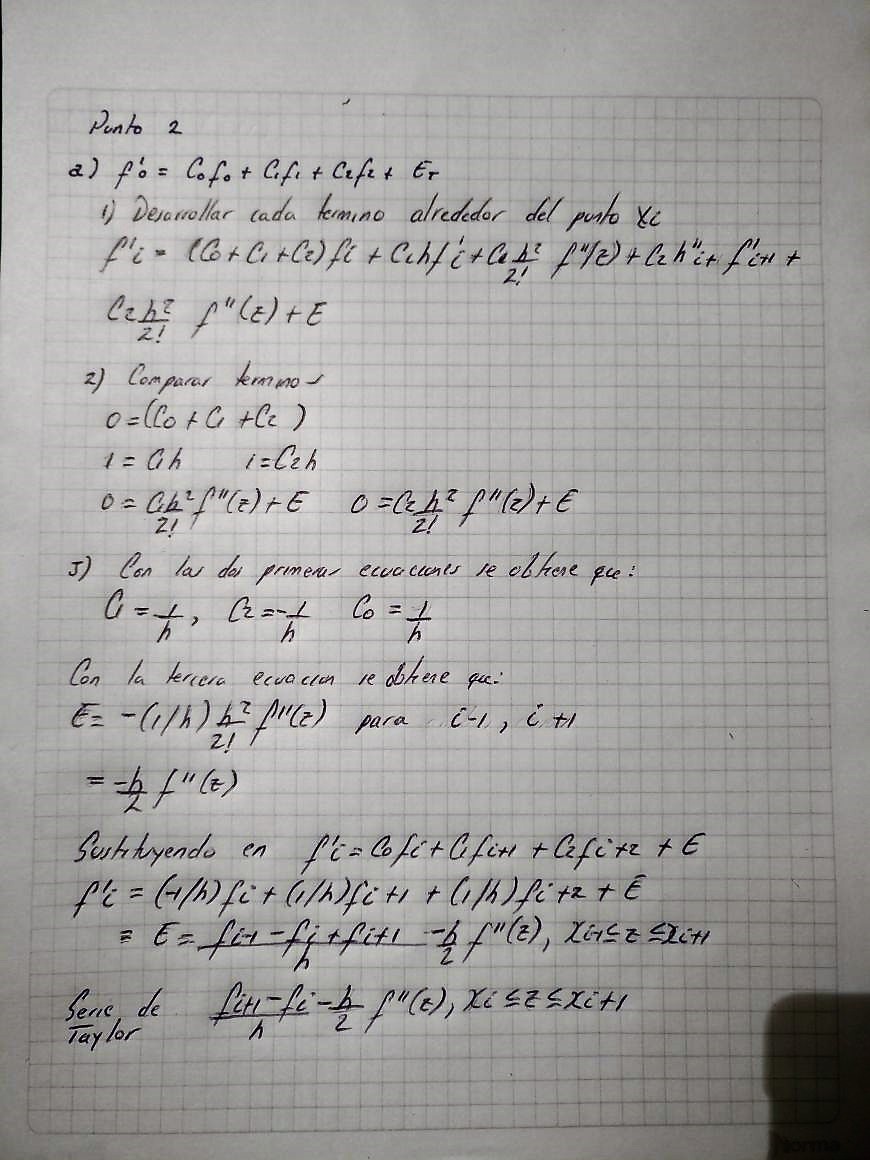 Punto 2
a) f'o = Cofo + C1f1 + C2f2 + ET
1) Desarrollar cada termino alrededor del punto xi
f'i = (C0 + C1 + C2) fi + C1hf'i + C1 h²/2! f''(z) + C2 h''i + f'i+1 +
C2 h²/2! f''(z) + E
2) Comparar terminos
0 = (C0 + C1 + C2)
1 = C1h 1 = C2h
0 = C1h²/2! f''(z) + E 0 = C2 h²/2! f''(z) + E
3) Con las dos primeras ecuaciones se obtiene que:
C1 = 1/h, C2 = -1/h C0 = 1/h
Con la tercera ecuacion se obtiene que:
E = -(1/h) h²/2! f''(z) para i-1, i+1
= -h/2 f''(z)
Sustituyendo en f'i = C0fi + C1fi+1 + C2fi+2 + E
f'i = (-1/h)fi + (1/h)fi+1 + (1/h)fi+2 + E
= E = fi-1 - fi + fi+1/h - h/2 f''(z), xi-1 ≤ z ≤ xi+1
Serie de Taylor fi+1 - fi/h - h/2 f''(z), xi ≤ z ≤ xi+1
Norma